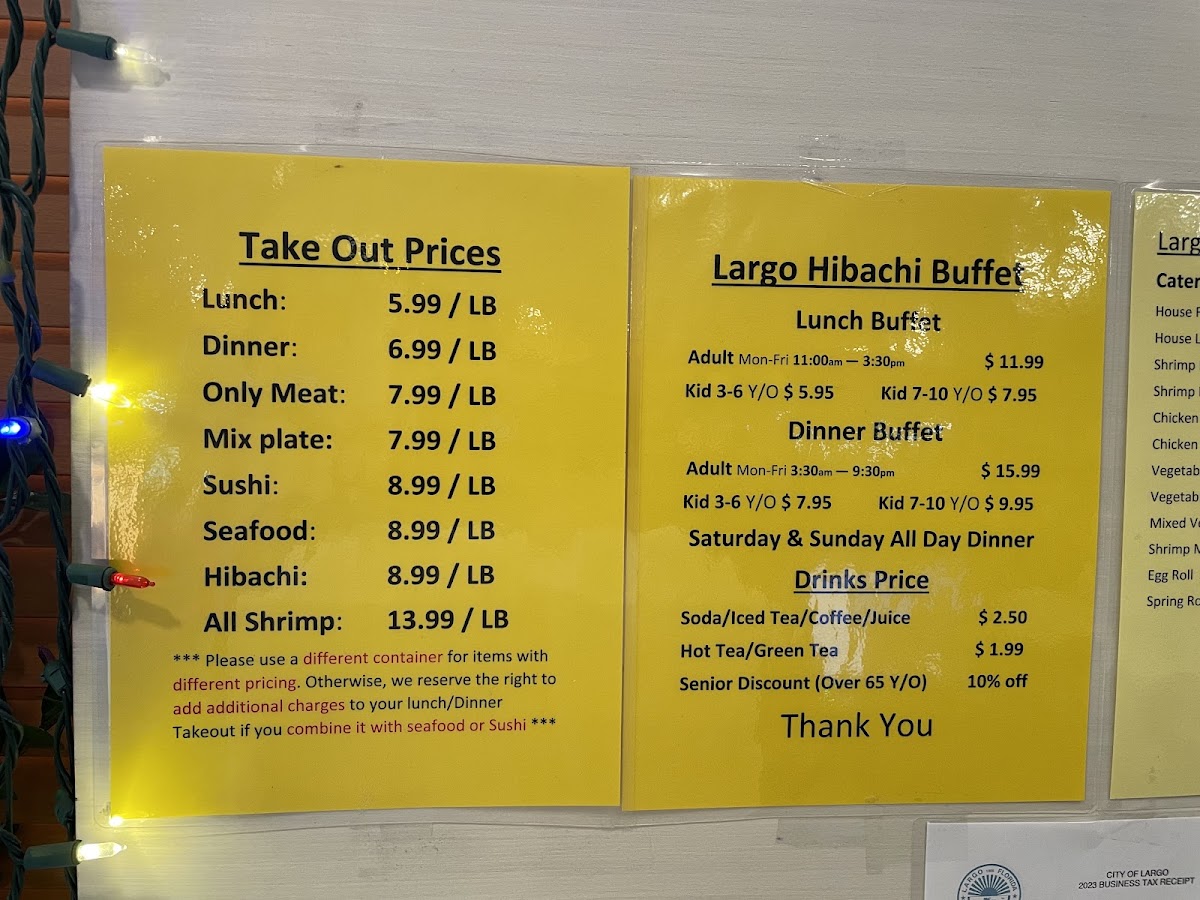 Take Out Prices
Lunch: 5.99 / LB
Dinner: 6.99 / LB
Only Meat: 7.99 / LB
Mix plate: 7.99 / LB
Sushi: 8.99 / LB
Seafood: 8.99 / LB
Hibachi: 8.99 / LB
All Shrimp: 13.99 / LB
*** Please use a different container for items with
different pricing. Otherwise, we reserve the right to
add additional charges to your lunch/Dinner
Takeout if you combine it with seafood or Sushi ***
Largo Hibachi Buffet
Lunch Buffet
Adult Mon-Fri 11:00am — 3:30pm $ 11.99
Kid 3-6 Y/O $ 5.95 Kid 7-10 Y/O $ 7.95
Dinner Buffet
Adult Mon-Fri 3:30am — 9:30pm $ 15.99
Kid 3-6 Y/O $ 7.95 Kid 7-10 Y/O $ 9.95
Saturday & Sunday All Day Dinner
Drinks Price
Soda/Iced Tea/Coffee/Juice $ 2.50
Hot Tea/Green Tea $ 1.99
Senior Discount (Over 65 Y/O) 10% off
Thank You
Larg
Cater
House
House
Shrimp
Shrimp
Chicken
Chicken
Vegetab
Vegetab
Mixed Ve
Shrimp M
Egg Roll
Spring Ro
LARGO FLORIDA
CITY OF LARGO
2023 BUSINESS TAX RECEIPT